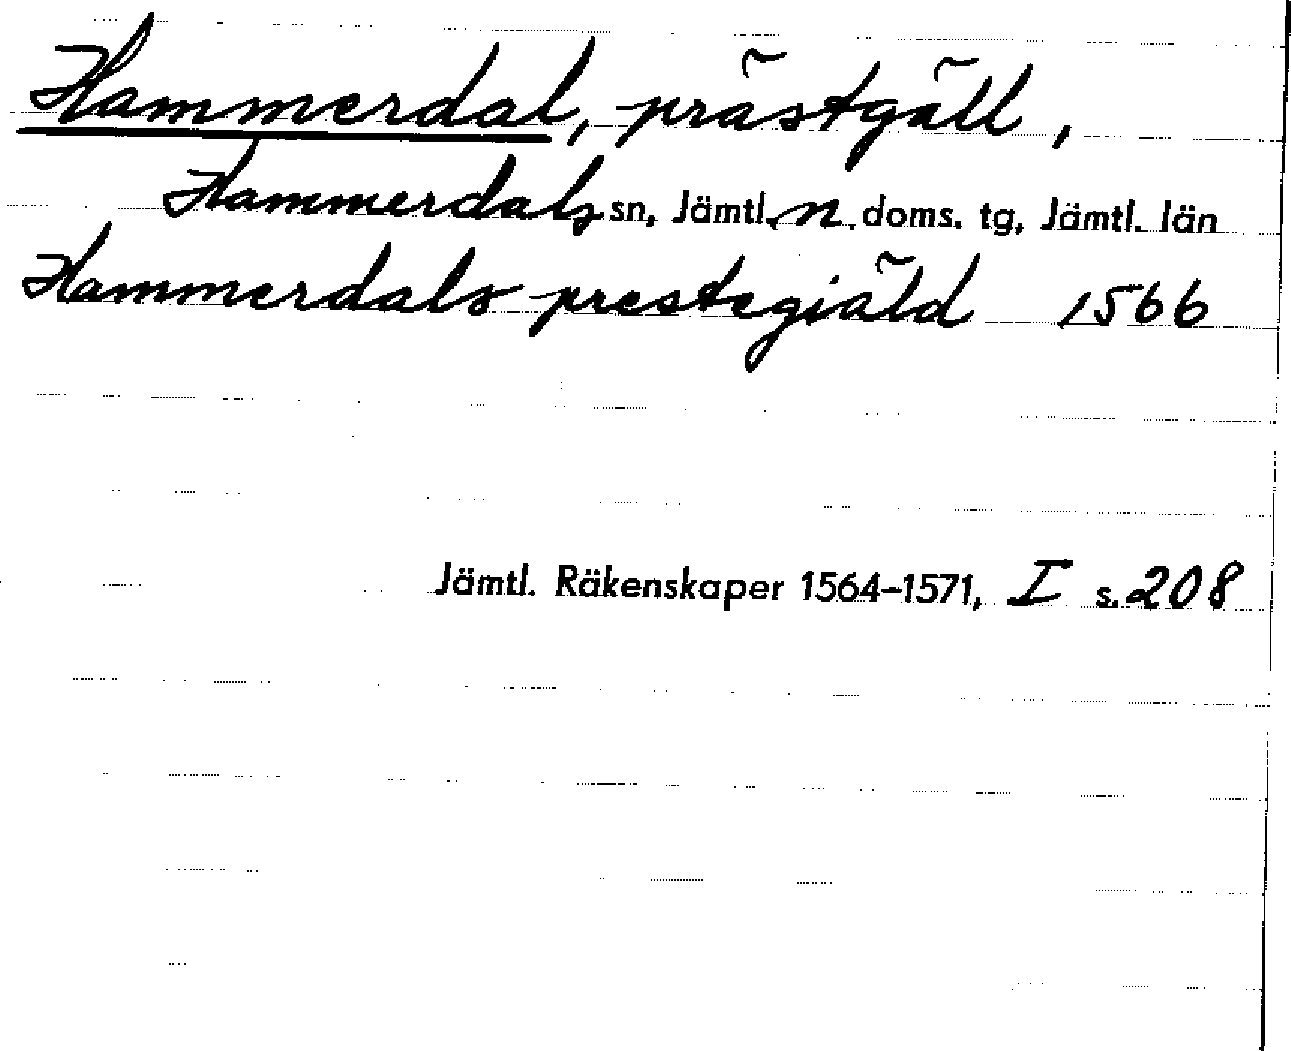 Hammerdal, prästgäll,
Hammerdals sn, Jämtl. n. doms. tg, Jämtl. län
Hammerdals prestegiäld 1566
Jämtl. Räkenskaper 1564-1571, I s. 208